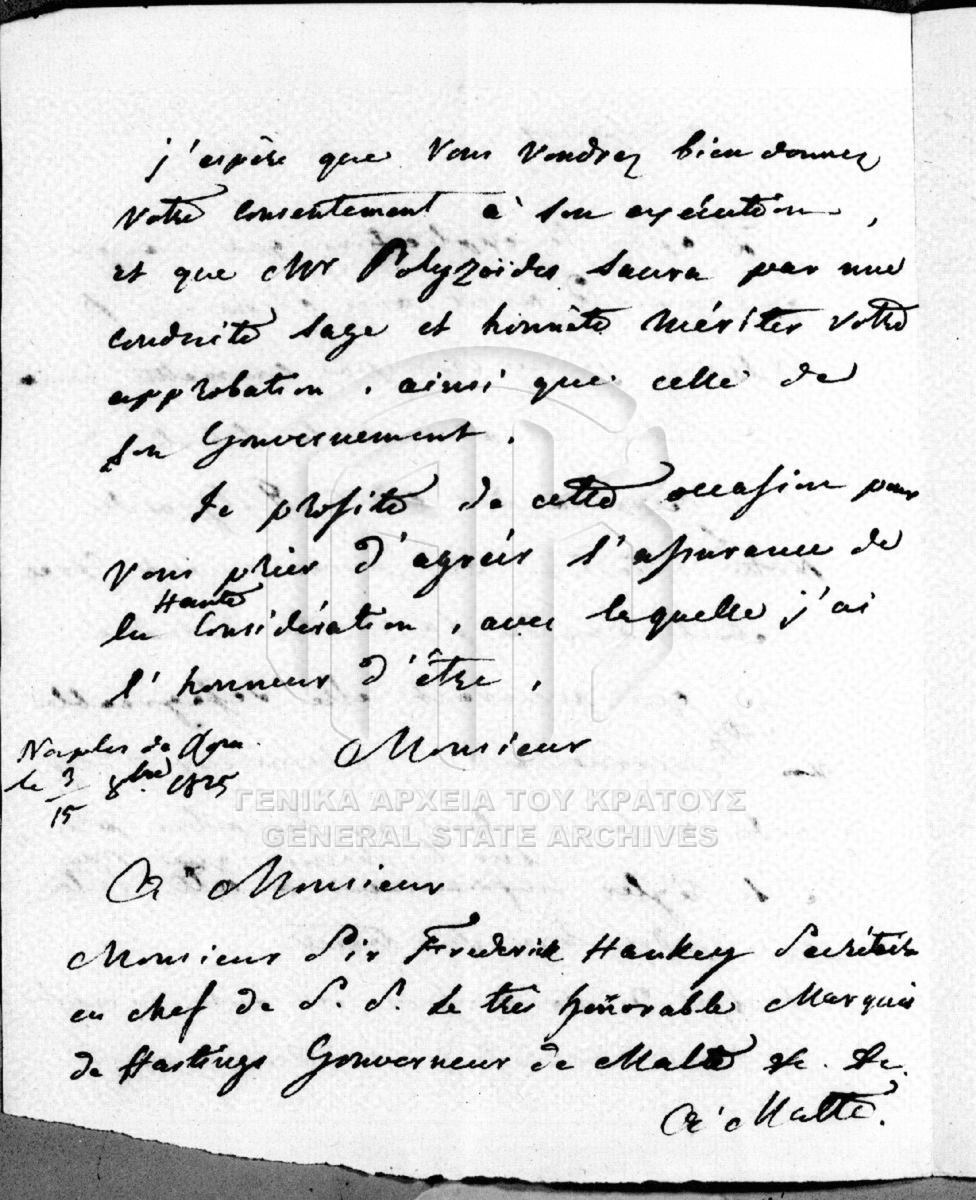 j'espère que Vous Voudrez bien donner
Votre Consentement à son exécution,
et que Mr Polyzoïdes Saura par une
conduite sage et honnête Mériter Votre
approbation, ainsi que celle de
son Gouvernement.
Je profite de cette occasion pour
Vous prier d'agréer l'assurance de
Haute
la Considération, avec laquelle j'ai
l'honneur d'être,
Monsieur
Naples de
le 3/15 8bre 1825
ΓΕΝΙΚΑ ΑΡΧΕΙΑ ΤΟΥ ΚΡΑΤΟΥΣ
GENERAL STATE ARCHIVES
A Monsieur
Monsieur Sir Frederick Hankey Secrétaire
en chef de S. S. Le très honorable Marquis
de Hastings Gouverneur de Malte &c. &c.
A Malte.